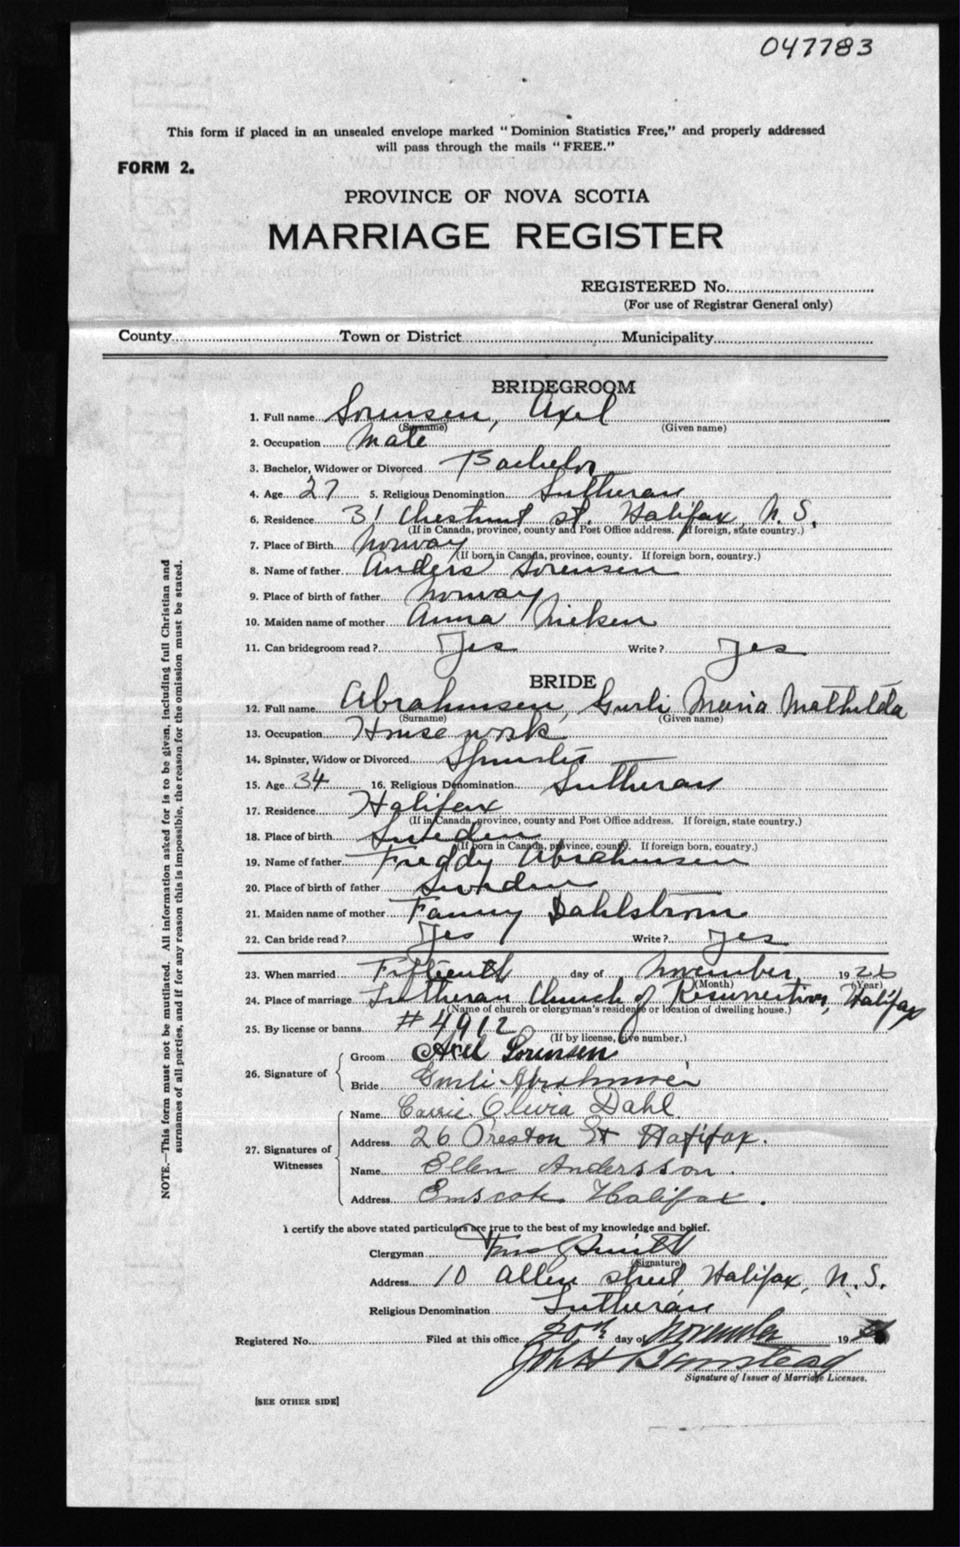 047783
This form if placed in an unsealed envelope marked "Dominion Statistics Free," and properly addressed
will pass through the mails "FREE."
FORM 2.
PROVINCE OF NOVA SCOTIA
MARRIAGE REGISTER
REGISTERED No.
(For use of Registrar General only)
County Town or District Municipality
BRIDEGROOM
1. Full name Sorensen, Axel
(Surname) (Given name)
2. Occupation Mate
3. Bachelor, Widower or Divorced Bachelor
4. Age 27 5. Religious Denomination Lutheran
6. Residence 31 Chestnut st. Halifax, N.S.
(If in Canada, province, county and Post Office address. If foreign, state country.)
7. Place of Birth Norway
(If born in Canada, province, county. If foreign born, country.)
8. Name of father Anders Sorensen
9. Place of birth of father Norway
10. Maiden name of mother Anna
11. Can bridegroom read? Yes Write? Yes
BRIDE
12. Full name Abrahmsen, Gurli Maria Mathilda
(Surname) (Given name)
13. Occupation House work
14. Spinster, Widow or Divorced Spinster
15. Age 34 16. Religious Denomination Lutheran
17. Residence Halifax
(If in Canada, province, county and Post Office address. If foreign, state country.)
18. Place of birth Sweden
(If born in Canada, province, county. If foreign born, country.)
19. Name of father Freddy Abrahmsen
20. Place of birth of father Sweden
21. Maiden name of mother Fanny Dahlstrom
22. Can bride read? Yes Write? Yes
23. When married Fifteenth day of November 1926
(Month) (Year)
24. Place of marriage Lutheran Church of Resurrection, Halifax
(Name of church or clergyman's residence or location of dwelling house.)
25. By license or banns #4912
(If by license, give number.)
26. Signature of
Groom Axel Sorensen
Bride Gurli
27. Signatures of Witnesses
Name Carrie Olivia Dahl
Address 26 Preston St Halifax.
Name Ellen Andersson.
Address Halifax.
I certify the above stated particulars are true to the best of my knowledge and belief.
Clergyman Smith
(Signature)
Address 10 Allen street Halifax, N.S.
Religious Denomination Lutheran
Registered No. Filed at this office 20th day of November 19
John
Signature of Issuer of Marriage Licenses.
[SEE OTHER SIDE]
NOTE.—This form must not be mutilated. All information asked for is to be given, including full Christian and
surnames of all parties, and if for any reason this is impossible, the reason for the omission must be stated.